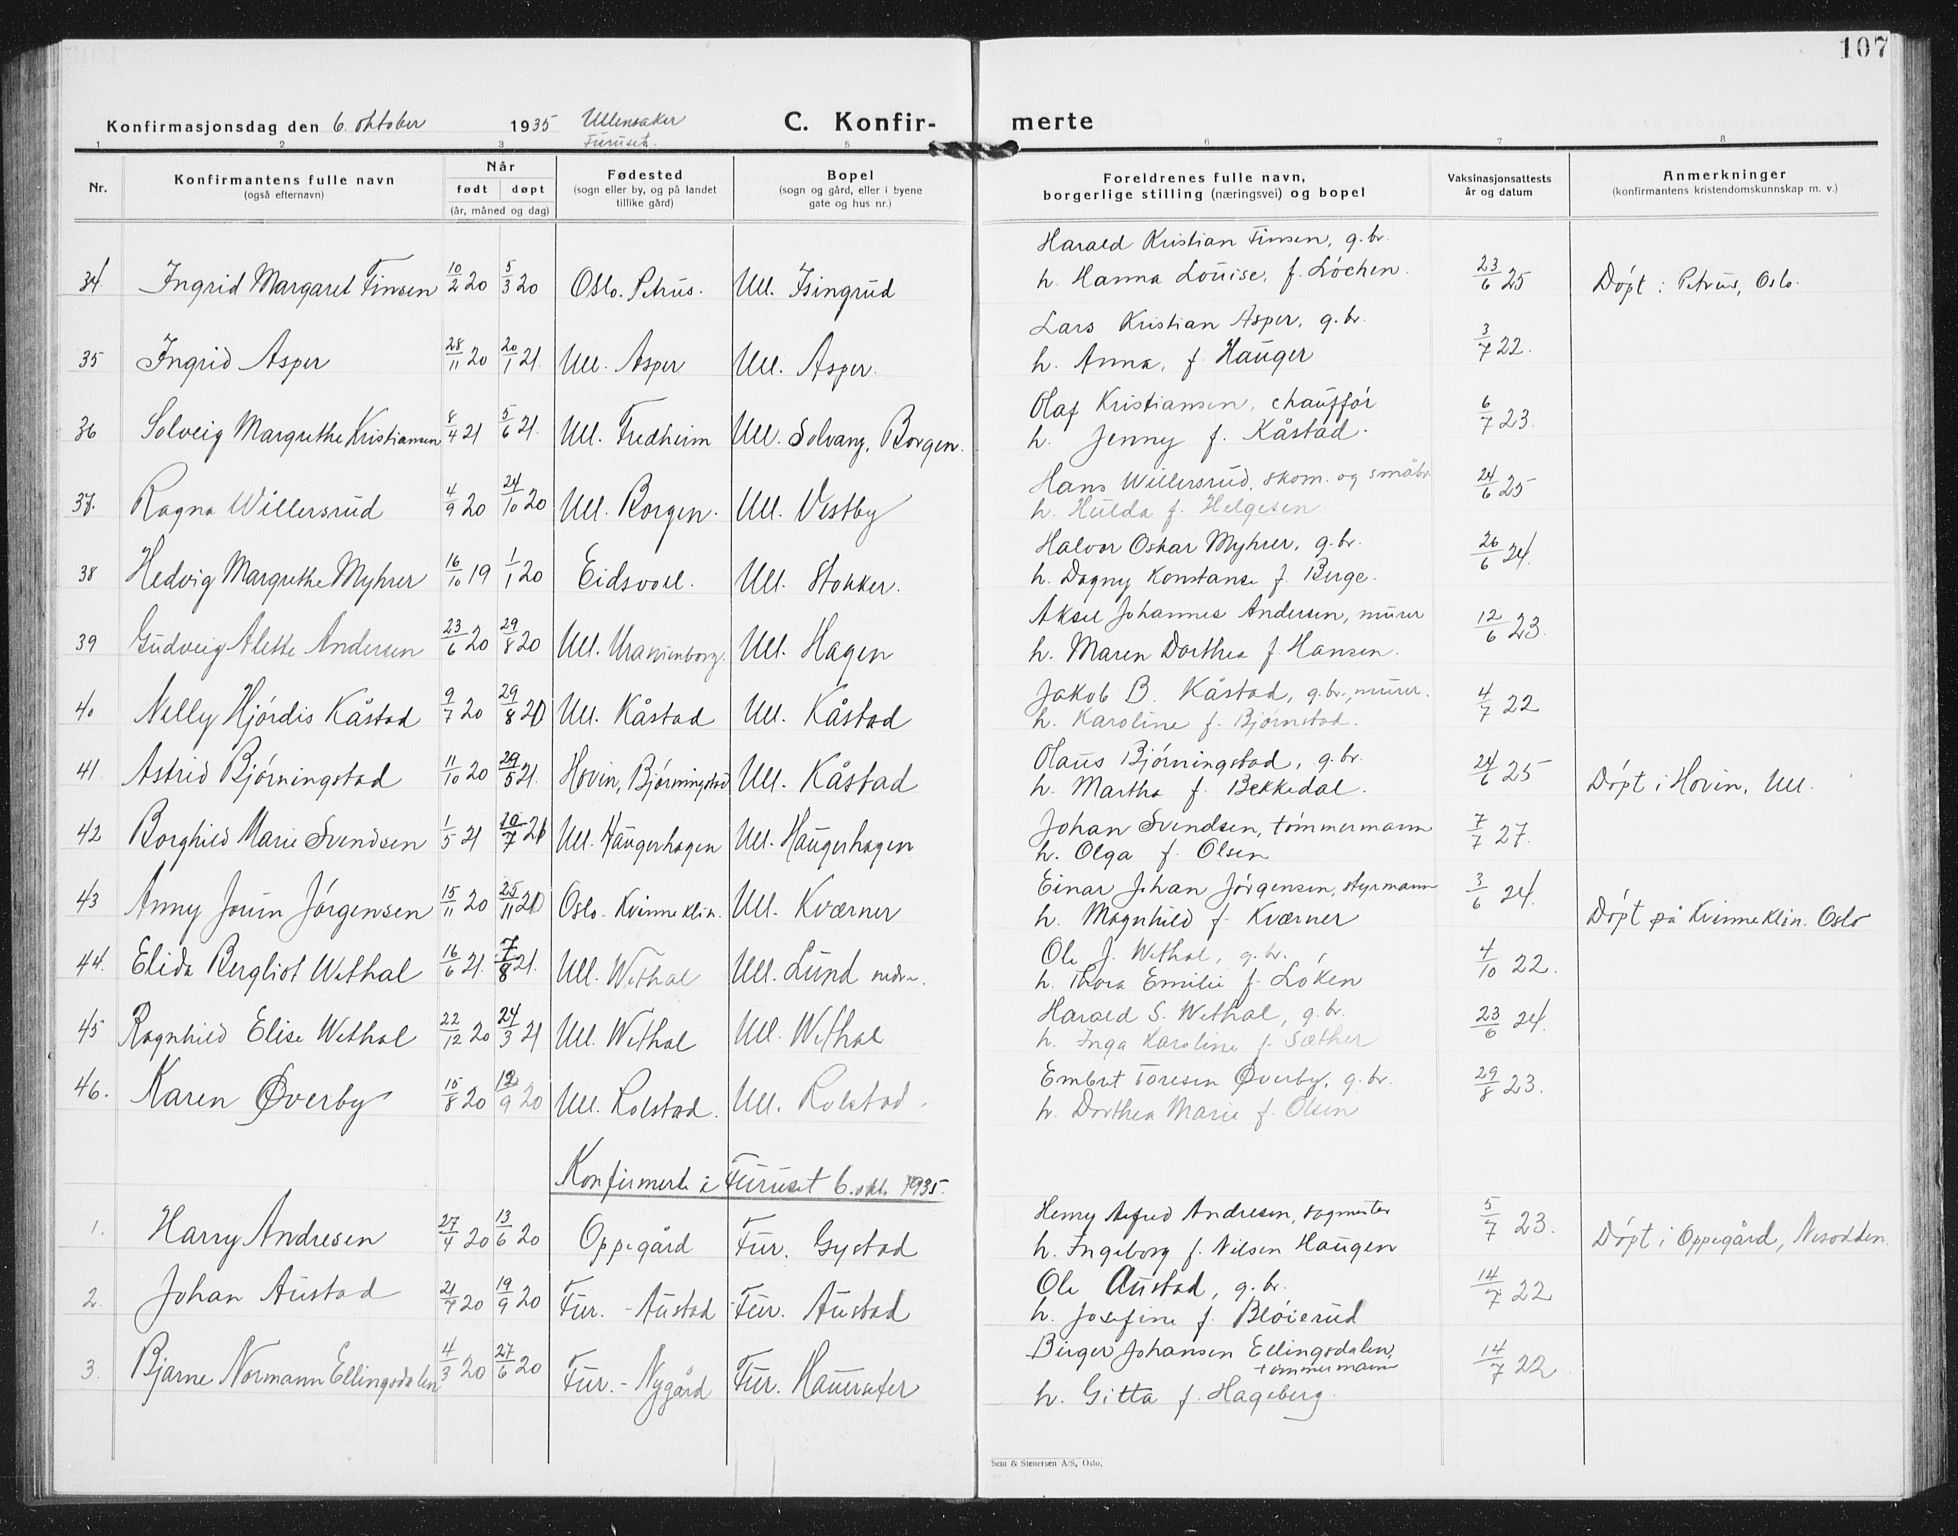 107
Konfirmasjonsdag den 6. oktober 1935 Ullensaker C. Konfir- merte
Furuset.
1 2 3 5 6 7 8
Nr. Konfirmantens fulle navn (også efternavn) Når født døpt (år, måned og dag) Fødested (sogn eller by, og på landet tillike gård) Bopel (sogn og gård, eller i byene gate og hus nr.) Foreldrenes fulle navn, borgerlige stilling (næringsvei) og bopel Vaksinasjonsattests år og datum Anmerkninger (konfirmantens kristendomskunnskap m. v.)
Harald Kristian Finsen, g.br.
34. Ingrid Margaret Finsen 10/2 20 5/3 20 Oslo. Petrus. Ull. Isingrud h. Hanna Louise, f. Løchen. 23/6 25 Døpt i Petrus, Oslo.
Lars Kristian Asper, g.br.
35 Ingrid Asper 28/11 20 20/1 21. Ull. Asper Ull. Asper. h. Anna, f. Hauger 3/7 22.
Olaf Kristiansen, chauffør
36 Solveig Margrethe Kristiansen 8/4 21 5/6 21. Ull. Fredheim Ull. Solvang, Borgen. h. Jenny f. Kåstad. 6/7 23.
Hans Willersrud, skom. og småbr.
37. Ragna Willersrud 4/9 20 24/10 20 Ull. Borgen. Ull. Vestby h. Hulda f. Helgesen 24/6 25
Halvor Oskar Myhrer, g.br.
38 Hedvig Margrethe Myhrer 16/10 19 1/1 20 Eidsvoll. Ull. Stokker. h. Dagny Konstanse f. Berge. 26/6 24.
Aksel Johannes Andersen, murer
39 Gudveig Alette Andersen 23/6 20 29/8 20 Ull. Uranienborg. Ull. Hagen h. Maren Dorthea f. Hansen. 12/6 23.
Jakob B. Kåstad, g.br., murer.
40 Nelly Hjørdis Kåstad 9/7 20 29/8 20 Ull. Kåstad Ull. Kåstad h. Karoline f. Bjørnstad. 4/7 22
Olaus Bjørningstad, g.br.
41 Astrid Bjørningstad 11/10 20 29/5 21. Hovin, Bjørningstad Ull. Kåstad h. Martha f. Bekkedal. 24/6 25 Døpt i Hovin, Ull.
Johan Svendsen, tømmermann
42 Borghild Marie Svendsen 1/5 21 10/7 21 Ull. Haugerhagen Ull. Haugerhagen h. Olga f. Olsen 7/7 27.
Einar Johan Jørgensen, styrmann
43 Anny Jørgensen 15/11 20 25/11 20 Oslo. Kvinneklin. Ull. Kværner h. Magnhild f. Kværner 3/6 24. Døpt på Kvinneklin. Oslo
Ole J. Wethal, g.br.
44. Elida Bergliot Wethal 16/6 21. 7/8 21. Ull. Wethal Ull. Lund nedre. h. Thora Emilie f. Løken 4/10 22.
Harald S. Wethal, g.br.
45 Ragnhild Elise Wethal 22/12 20 24/3 21 Ull. Wethal Ull. Wethal h. Inga Karoline f. Sæther 23/6 24.
Embret Toresen Øverby, g.br.
46. Karen Øverby 15/8 20 12/9 20 Ull. Rolstad. Ull. Rolstad. h. Dorthea Marie f. Olsen 29/8 23.
Konfirmerte i Furuset 6. okt. 1935.
Henry Alfred Andresen, sagmester
1. Harry Andresen 27/4 20 13/6 20 Oppegård Fur. Gystad h. Ingeborg f. Nilsen Haugen 5/7 23. Døpt i Oppegård, Nesodden.
Ole Austad, g.br.
2. Johan Austad 21/7 20 19/9 20 Fur. - Austad Fur. Austad h. Josefine f. Bløierud 14/7 22
Birger Johansen Ellingsdalen,
tømmermann
3. Bjarne Normann Ellingsdalen 4/3 20 27/6 20 Fur. - Nygård Fur. Hauerseter h. Gitta f. Hageberg. 14/7 22
Sem & Stenersen A/S, Oslo.